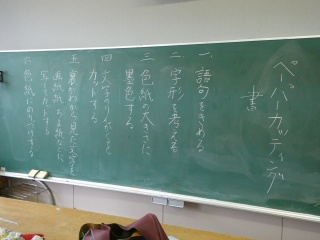 ペーパーカッティング
書
一 語句をきめる
二 字形を考える
三 色紙の大きさに
墨色する。
四 文字のりんかくを
カットする
五 裏がわから見た文字を
画用紙
写してカットする
六 色紙にのりづけする